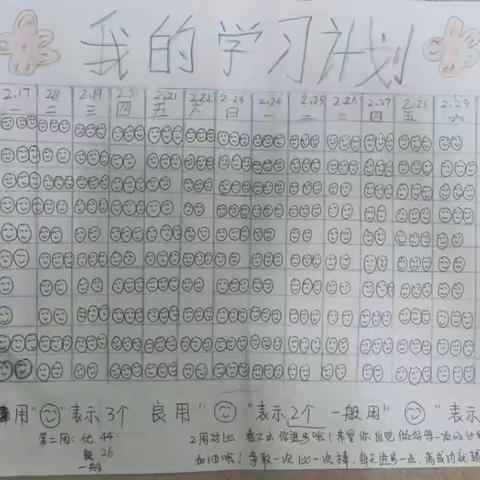 我的学习计划
2.17 2.18 2.19 2.20 2.21 2.22 2.23 2.24 2.25 2.26 2.27 2.28 2.29
一 二 三 四 五 六 日 一 二 三 四 五 六
用“ ”表示3个 良用“ ”表示2个 一般用“ ”表示
第二周：优 44 2周对比 看出你进步啦！希望你自觉做好每一次的计
良 26 加油哦！争取一次比一次棒，每天进步一点，离成功就越
一般